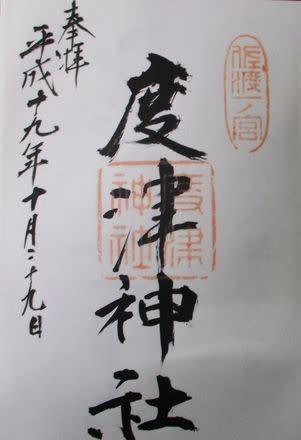 佐渡一ノ宮
度津神社
度津神社
奉拝
平成十九年十月二十九日